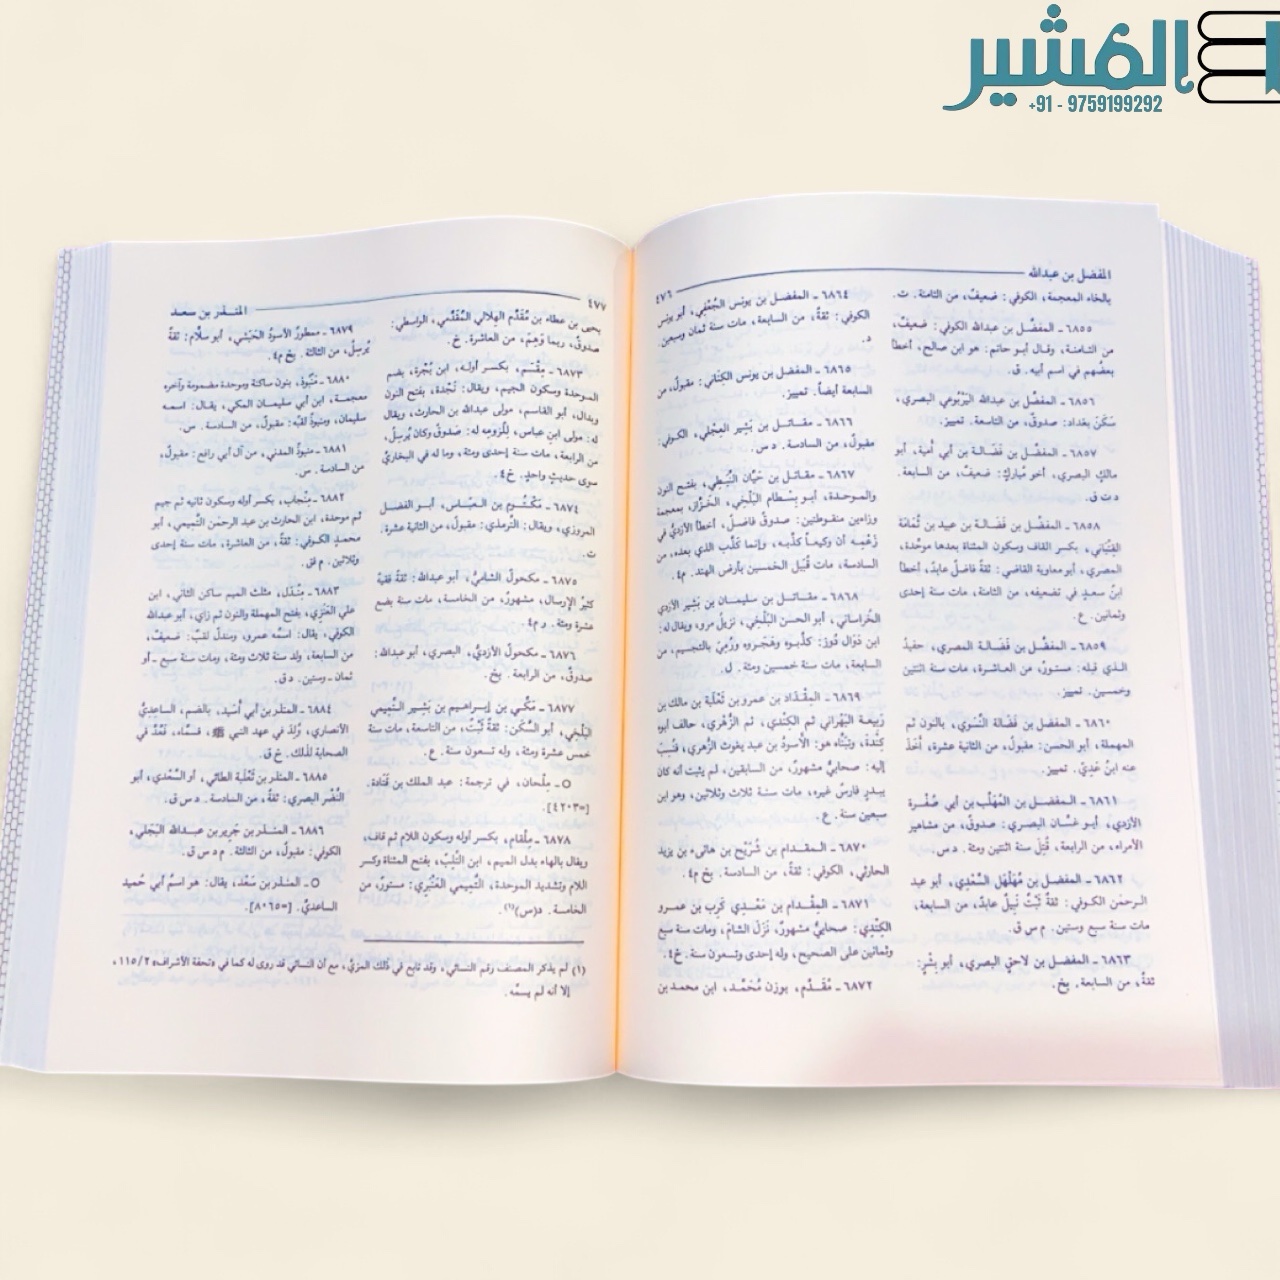 المشير
+91 - 9759199292
المفضل بن عبدالله
٤٧٦
بالخاء المعجمة، الكوفي: ضعيفٌ، من الثامنة. ت.
٦٨٥٥ ـ المفضَّل بن عبدالله الكوفي: ضعيفٌ،
من الثامنة، وقال أبو حاتم: هو ابن صالح، أخطأ
بعضُهم في اسم أبيه. ق.
٦٨٥٦ ـ المفضَّل بن عبدالله اليَرْبُوعي البصري،
سَكَنَ بغداد: صدوقٌ، من التاسعة. تمييز.
٦٨٥٧ ـ المفضَّل بن فَضَالة بن أبي أمية، أبو
مالكٍ البصري، أخو مُبارَكٍ: ضعيفٌ، من السابعة.
د ت ق.
٦٨٥٨ ـ المفضَّل بن فَضَالة بن عبيد بن ثُمَامة
القِتْباني، بكسر القاف وسكون المثناة بعدها موحَّدة،
المصري، أبو معاوية القاضي: ثقةٌ فاضلٌ عابدٌ، أخطأ
ابنُ سعدٍ في تضعيفه، من الثامنة، مات سنة إحدى
وثمانين. ع.
٦٨٥٩ ـ المفضَّل بن فَضَالة المصري، حفيدُ
الذي قبله: مستورٌ، من العاشرة، مات سنة اثنتين
وخمسين. تمييز.
٦٨٦٠ ـ المفضل بن فَضَالة النَّسَوي، بالنون ثم
المهملة، أبو الحسن: مقبولٌ، من الثانية عشرة، أخَذَ
عنه ابنُ عَدِيّ. تمييز.
٦٨٦١ ـ المفضل بن المُهَلَّب بن أبي صُفْرة
الأزدي، أبو غسَّان البصري: صدوقٌ، من مشاهير
الأمراء، من الرابعة، قُتِلَ سنة اثنتين ومئة. د س.
٦٨٦٢ ـ المفضل بن مُهَلْهَل السَّعْدي، أبو عبد
الرحمٰن الكوفي: ثقةٌ ثَبْتٌ نَبيلٌ عابدٌ، من السابعة،
مات سنة سبع وستين. م س ق.
٦٨٦٣ ـ المفضل بن لاحقٍ البصري، أبو بِشْرٍ:
ثقةٌ، من السابعة. بخ.
٦٨٦٤ ـ المفضل بن يونس الجُعْفي، أبو يونس
الكوفي: ثقةٌ، من السابعة، مات سنة ثمان وسبعين.
د.
٦٨٦٥ ـ المفضل بن يونس الكِنَاني: مقبولٌ، من
السابعة أيضاً. تمييز.
٦٨٦٦ ـ مقاتل بن بَشير العِجْلي، الكوفي:
مقبولٌ، من السادسة. د س.
٦٨٦٧ ـ مقاتل بن حَيَّان النَّبَطي، بفتح النون
والموحدة، أبو بِسْطام البَلْخي، الخَزَّاز، بمعجمة
وزايين منقوطتين: صدوقٌ فاضلٌ، أخطأ الأزديُّ في
زَعْمِه أن وكيعاً كذَّبه، وإنما كذَّب الذي بعده، من
السادسة، مات قُبَيْل الخمسين بأرض الهند. م٤.
٦٨٦٨ ـ مقاتل بن سليمان بن بَشير الأزدي
الخُراساني، أبو الحسن البَلْخي، نزيل مرو، ويقال له:
ابن دَوَال دُوز: كذَّبوه وهَجَروه ورُمِيَ بالتجسيم، من
السابعة، مات سنة خمسين ومئة. ل.
٦٨٦٩ ـ المِقْداد بن عمرو بن ثَعْلَبة بن مالك بن
رَبيعة البَهْراني ثم الكِنْدي، ثم الزُّهْري، حالف أبوه
كِنْدةَ، وتَبَنَّاه هو: الأسودُ بن عبد يغوث الزُّهري، فنُسِبَ
إليه: صحابيٌّ مشهورٌ، من السابقين، لم يثبت أنه كان
ببدرٍ فارسٌ غيره، مات سنة ثلاث وثلاثين، وهو ابن
سبعين سنة. ع.
٦٨٧٠ ـ المقدام بن شُرَيْح بن هانىء بن يزيد
الحارثي، الكوفي: ثقةٌ، من السادسة. بخ م٤.
٦٨٧١ ـ المِقْدام بن مَعْدي كَرِب بن عمرو
الكِنْدي: صحابيٌّ مشهورٌ، نَزَلَ الشامَ، ومات سنة سبع
وثمانين على الصحيح، وله إحدى وتسعون سنة. خ٤.
٦٨٧٢ ـ مُقَدَّم، بوزن مُحَمَّد، ابن محمد بن
المنذر بن سعد
٤٧٧
يحيى بن عطاء بن مُقَدَّم الهِلالي المُقَدَّمي، الواسطي:
صدوقٌ، ربما وَهِمَ، من العاشرة. خ.
٦٨٧٣ ـ مِقْسَم، بكسر أوله، ابن بُجْرَة، بضم
الموحدة وسكون الجيم، ويقال: نَجْدة، بفتح النون
وبدال، أبو القاسم، مولى عبدالله بن الحارث، ويقال
له: مولى ابن عباس، لِلُزومِه له: صدوقٌ وكان يُرسِلُ،
من الرابعة، مات سنة إحدى ومئة، وما له في البخاريِّ
سوى حديثٍ واحدٍ. خ٤.
٦٨٧٤ ـ مَكْتُوم بن العباس، أبو الفضل
المروزي، ويقال: التِّرمذي: مقبولٌ، من الثانية عشرة.
ت.
٦٨٧٥ ـ مكحولٌ الشاميُّ، أبو عبدالله: ثقةٌ فقيهٌ
كثيرُ الإرسال، مشهورٌ، من الخامسة، مات سنة بضع
عشرة ومئة. ر م٤.
٦٨٧٦ ـ مكحولٌ الأزديُّ، البصري، أبو عبدالله:
صدوقٌ، من الرابعة. بخ.
٦٨٧٧ ـ مَكِّي بن إبراهيم بن بَشير التَّميمي
البَلْخي، أبو السَّكَن: ثقةٌ ثَبْتٌ، من التاسعة، مات سنة
خمس عشرة ومئة، وله تسعون سنة. ع.
○ ـ مِلْحان، في ترجمة: عبد الملك بن قَتَادة.
[=٤٢٠٣].
٦٨٧٨ ـ مِلْقام، بكسر أوله وسكون اللام ثم قاف،
ويقال بالهاء بدل الميم، ابن التَّلِبِّ، بفتح المثناة وكسر
اللام وتشديد الموحدة، التَّميمي العَنْبَري: مستورٌ، من
الخامسة. د(س)(١).
٦٨٧٩ ـ ممطورٌ الأسودُ الحَبَشي، أبو سلَّام: ثقةٌ
يُرسِلُ، من الثالثة. بخ م٤.
٦٨٨٠ ـ مَنْبُوذ، بنون ساكنة وموحدة مضمومة وآخره
معجمة، ابن أبي سليمان المكي، يقال: اسمه
سليمان، ومنبوذٌ لقبُه: مقبولٌ، من السادسة. س.
٦٨٨١ ـ منبوذٌ المدني، من آل أبي رافع: مقبولٌ،
من السادسة. س.
٦٨٨٢ ـ مِنْجاب، بكسر أوله وسكون ثانيه ثم جيم
ثم موحدة، ابن الحارث بن عبد الرحمٰن التَّميمي، أبو
محمدٍ الكوفي: ثقةٌ، من العاشرة، مات سنة إحدى
وثلاثين. م فق.
٦٨٨٣ ـ مِنْدَل، مثلث الميم ساكن الثاني، ابن
علي العَنَزي، بفتح المهملة والنون ثم زاي، أبو عبدالله
الكوفي، يقال: اسمُه عمرو، ومندلٌ لقبٌ: ضعيفٌ،
من السابعة، ولد سنة ثلاث ومئة، ومات سنة سبع ـ أو
ثمان ـ وستين. د ق.
٦٨٨٤ ـ المنذر بن أبي أُسَيد، بالضم، الساعِدِيُّ
الأنصاري، وُلِدَ في عهد النبي ﷺ، فسمَّاه، فعُدَّ في
الصحابة لذلك. خ ق.
٦٨٨٥ ـ المنذر بن ثَعْلَبة الطائي، أو السَّعْدي، أبو
النَّضْر البصري: ثقةٌ، من السادسة. د س ق.
٦٨٨٦ ـ المنذر بن جَرير بن عبدالله البَجَلي،
الكوفي: مقبولٌ، من الثالثة. م د س ق.
○ ـ المنذر بن سَعْد، يقال: هو اسمُ أبي حُميد
الساعديِّ. [=٨٠٦٥].
(١) لم يذكر المصنف رقم النسائي، وقد تابع في ذلك المزيَّ، مع أن النسائي قد روى له كما في «تحفة الأشراف» ١١٥/٢،
إلا أنه لم يسمِّه.